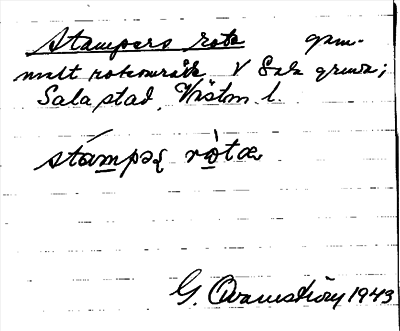 Stampers rote gam-
malt roteområde V Sala gruva;
Sala stad, Västm l.
stámpəʀ ròtæ
G. Qvarnström 1943